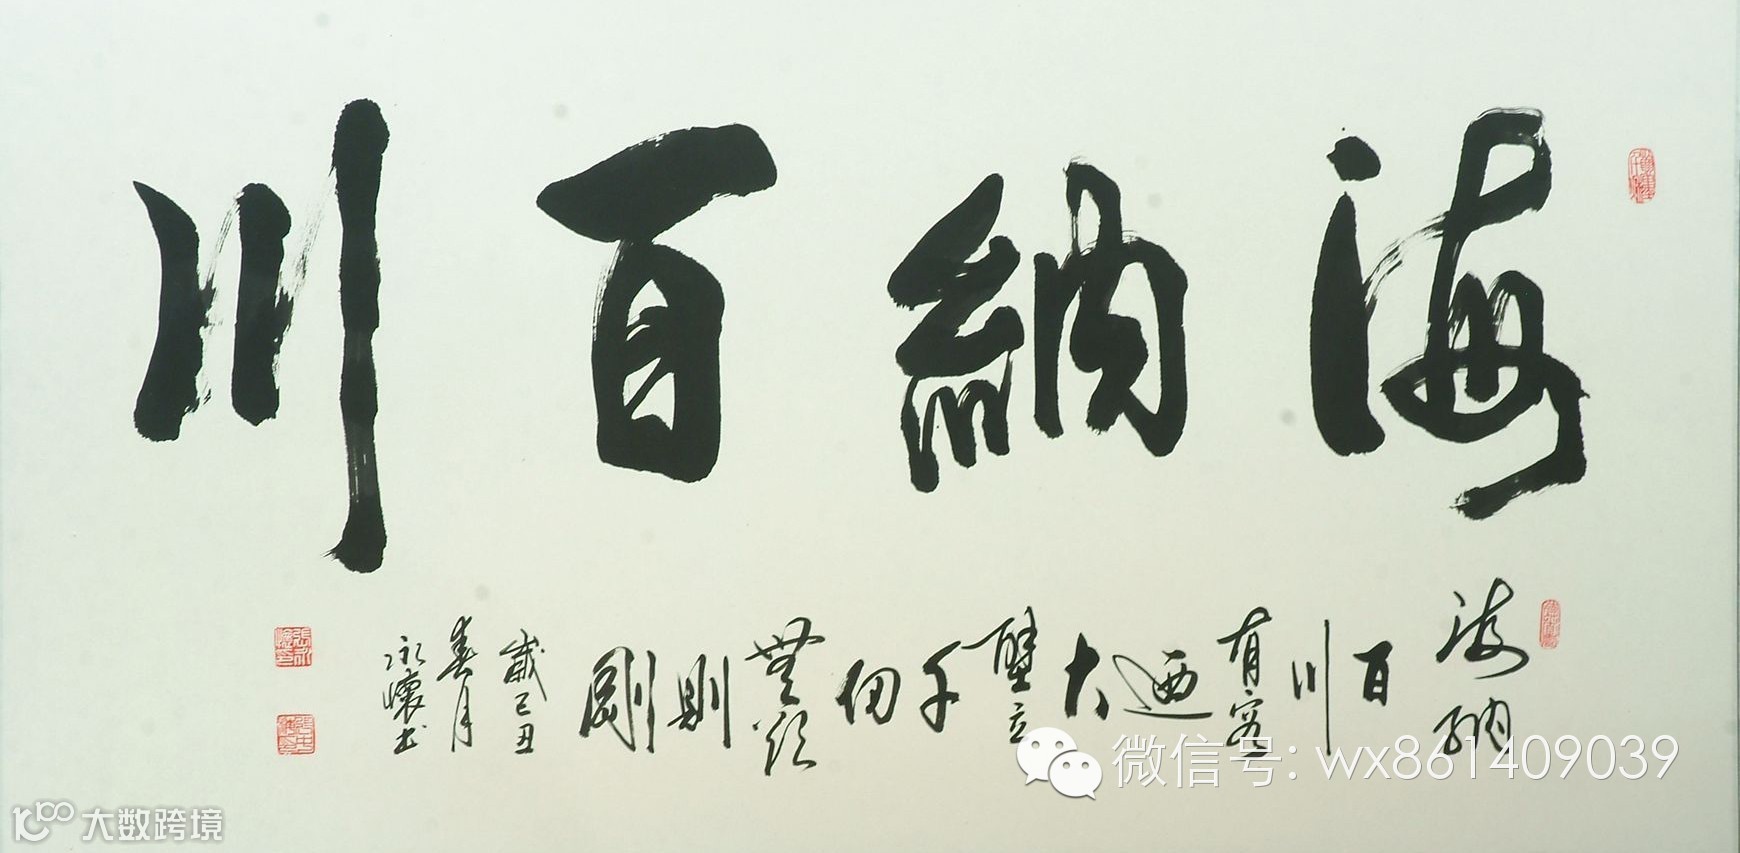 海納百川
海納
百
川
有容
迺
大
壁立
千
仞
無欲
則
剛
歲己丑
春月
永懷书
微信号: wx861409039
大数跨境